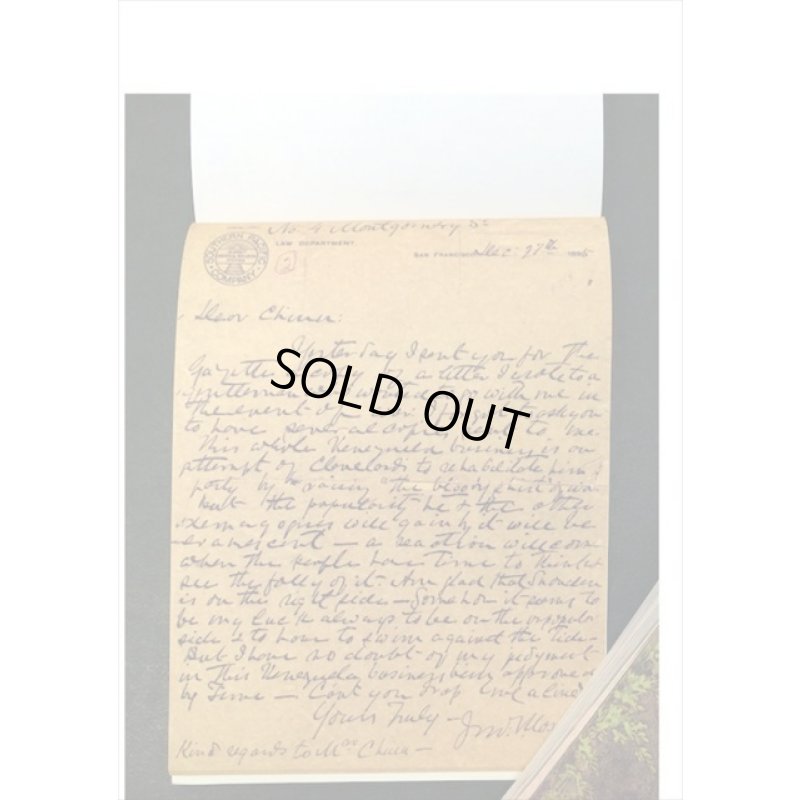 No. 4 Montgomery St
SOUTHERN PACIFIC COMPANY
LAW DEPARTMENT
SAN FRANCISCO, Dec. 27th 1895
Dear Chinn:
Yesterday I sent you for the
Gazette a copy of a letter I wrote to a
gentleman who wanted to go with me in
the event of a war. I forgot to ask you
to have several copies sent to me.
This whole Venezuela business is an
attempt of Cleveland's to rehabilitate him &
party by "raising" the bloody shirt of war
but the popularity he & the other
demagogues will gain by it will be
evanescent — a reaction will come
when the people have time to think &
see the folly of it. Am glad that Snowden
is on the right side — Somehow it seems to
be my luck always to be on the unpopular
side & to have to swim against the tide.
But I have no doubt of my judgment
in this Venezuela business being approved
by Time — Can't you drop me a line
Yours Truly —
Jno. S. Mos
Kind regards to Mrs Chinn —
SOLD OUT